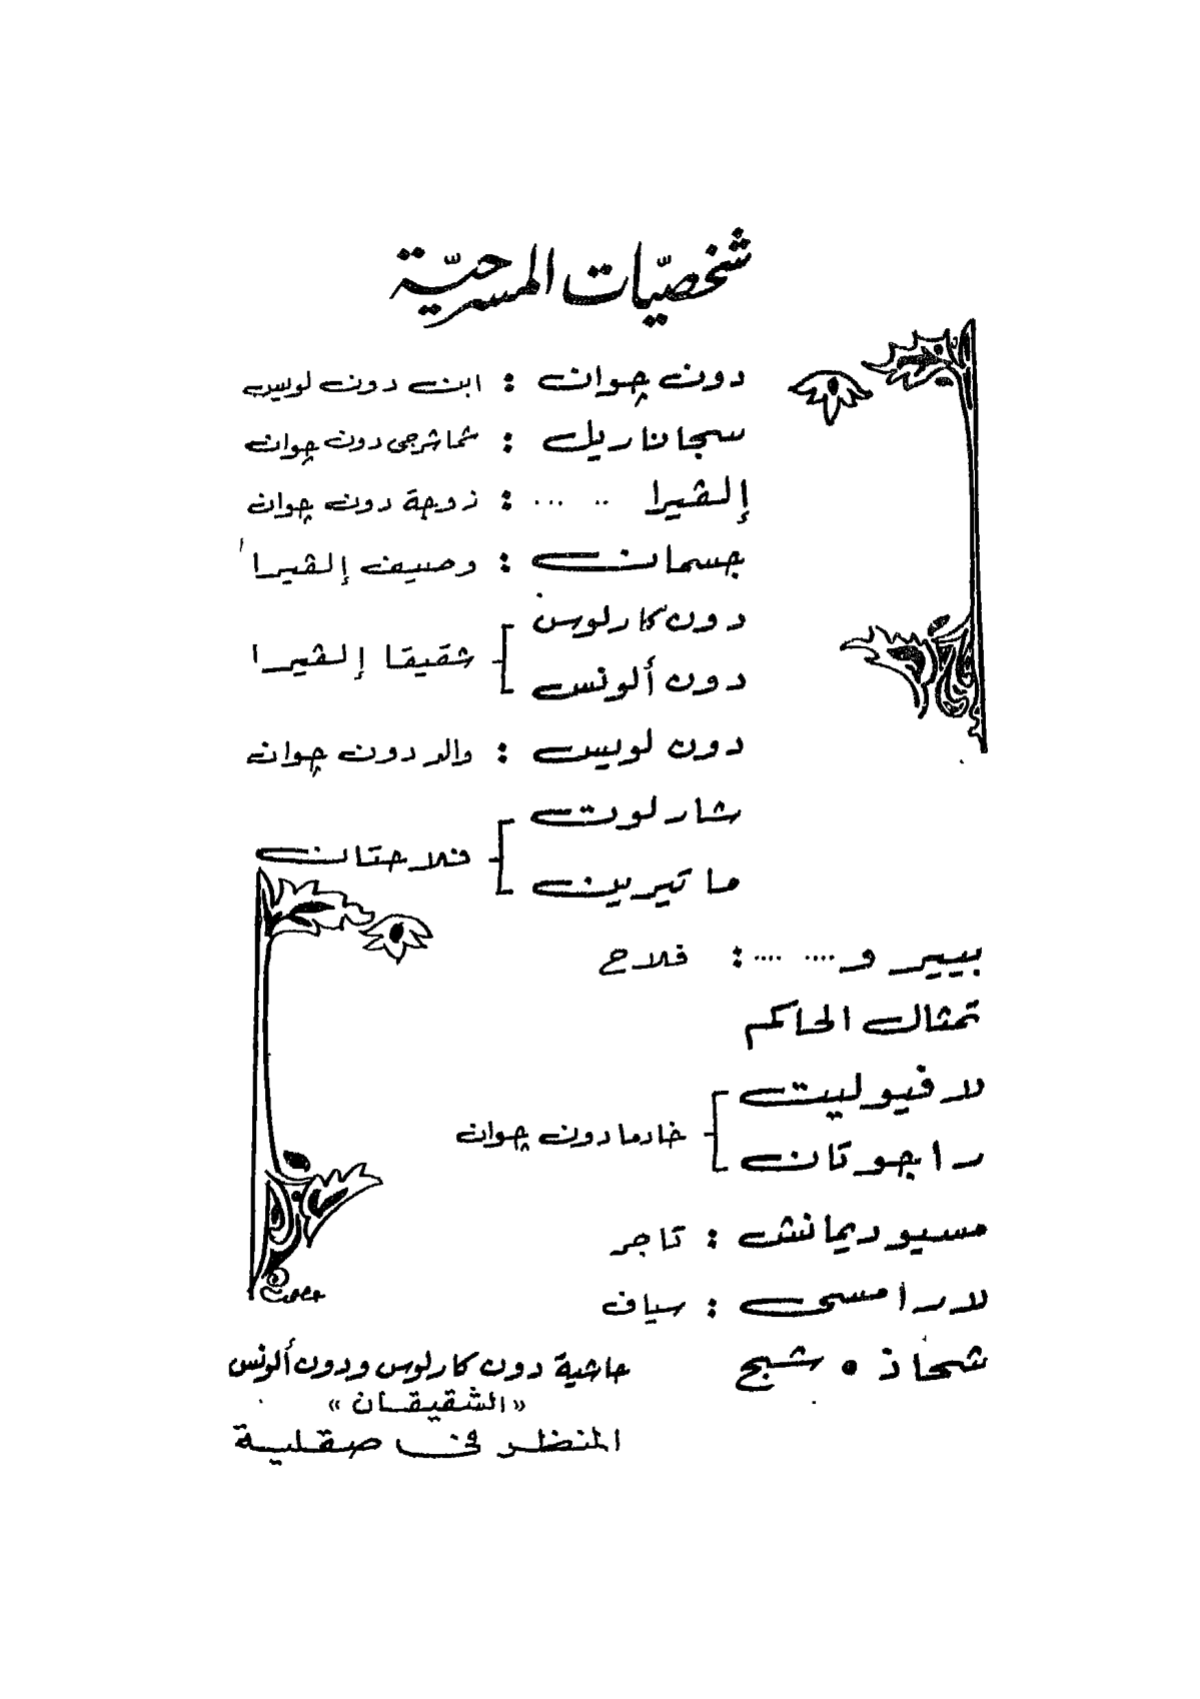 شخصيّات المسرحيّة
دون چوان : ابن دون لويس
سجاناريل : شماشرجى دون چوان
إلڤيرا .. ... : زوجة دون چوان
جسمان : وصيف إلڤيرا
دون كارلوس
شقيقا إلڤيرا
دون ألونس
دون لويس : والد دون چوان
شارلوت
فلاحتان
ماتيرين
بيير و .... .... : فلاح
تمثال الحاكم
لافيوليت
خادما دون چوان
راجوتان
مسيو ديمانش : تاجر
لارامسى : سياف
شحاذ • شبح
حاشية دون كارلوس ودون ألونس
«الشقيقان»
المنظر فى صقلية